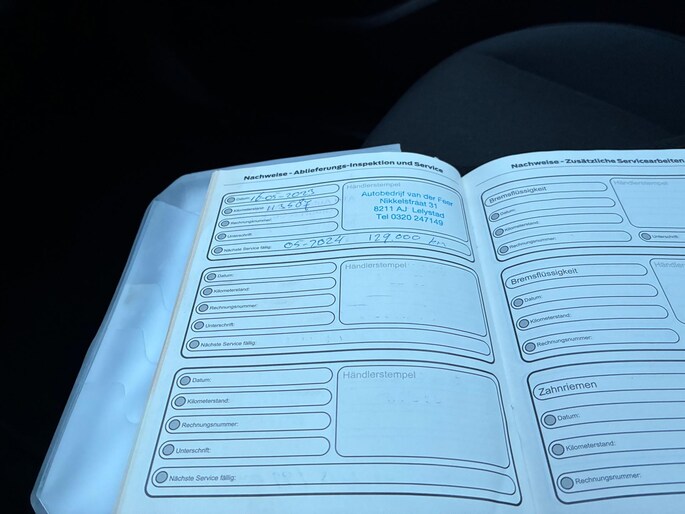 Nachweise - Ablieferungs-Inspektion und Service
Datum: 16-05-2023
Kilometerstand: 113507
Rechnungsnummer:
Unterschrift:
Nächste Service fällig: 05-2024 129.000 km
Händlerstempel
Autobedrijf van der Feer
Nikkelstraat 31
8211 AJ Lelystad
Tel 0320 247149
Datum:
Kilometerstand:
Rechnungsnummer:
Unterschrift:
Nächste Service fällig:
Händlerstempel
Datum:
Kilometerstand:
Rechnungsnummer:
Unterschrift:
Nächste Service fällig:
Händlerstempel
Nachweise - Zusätzliche Servicearbeiten
Bremsflüssigkeit
Datum:
Kilometerstand:
Rechnungsnummer:
Unterschrift
Bremsflüssigkeit
Datum:
Kilometerstand:
Rechnungsnummer:
Zahnriemen
Datum:
Kilometerstand:
Rechnungsnummer: